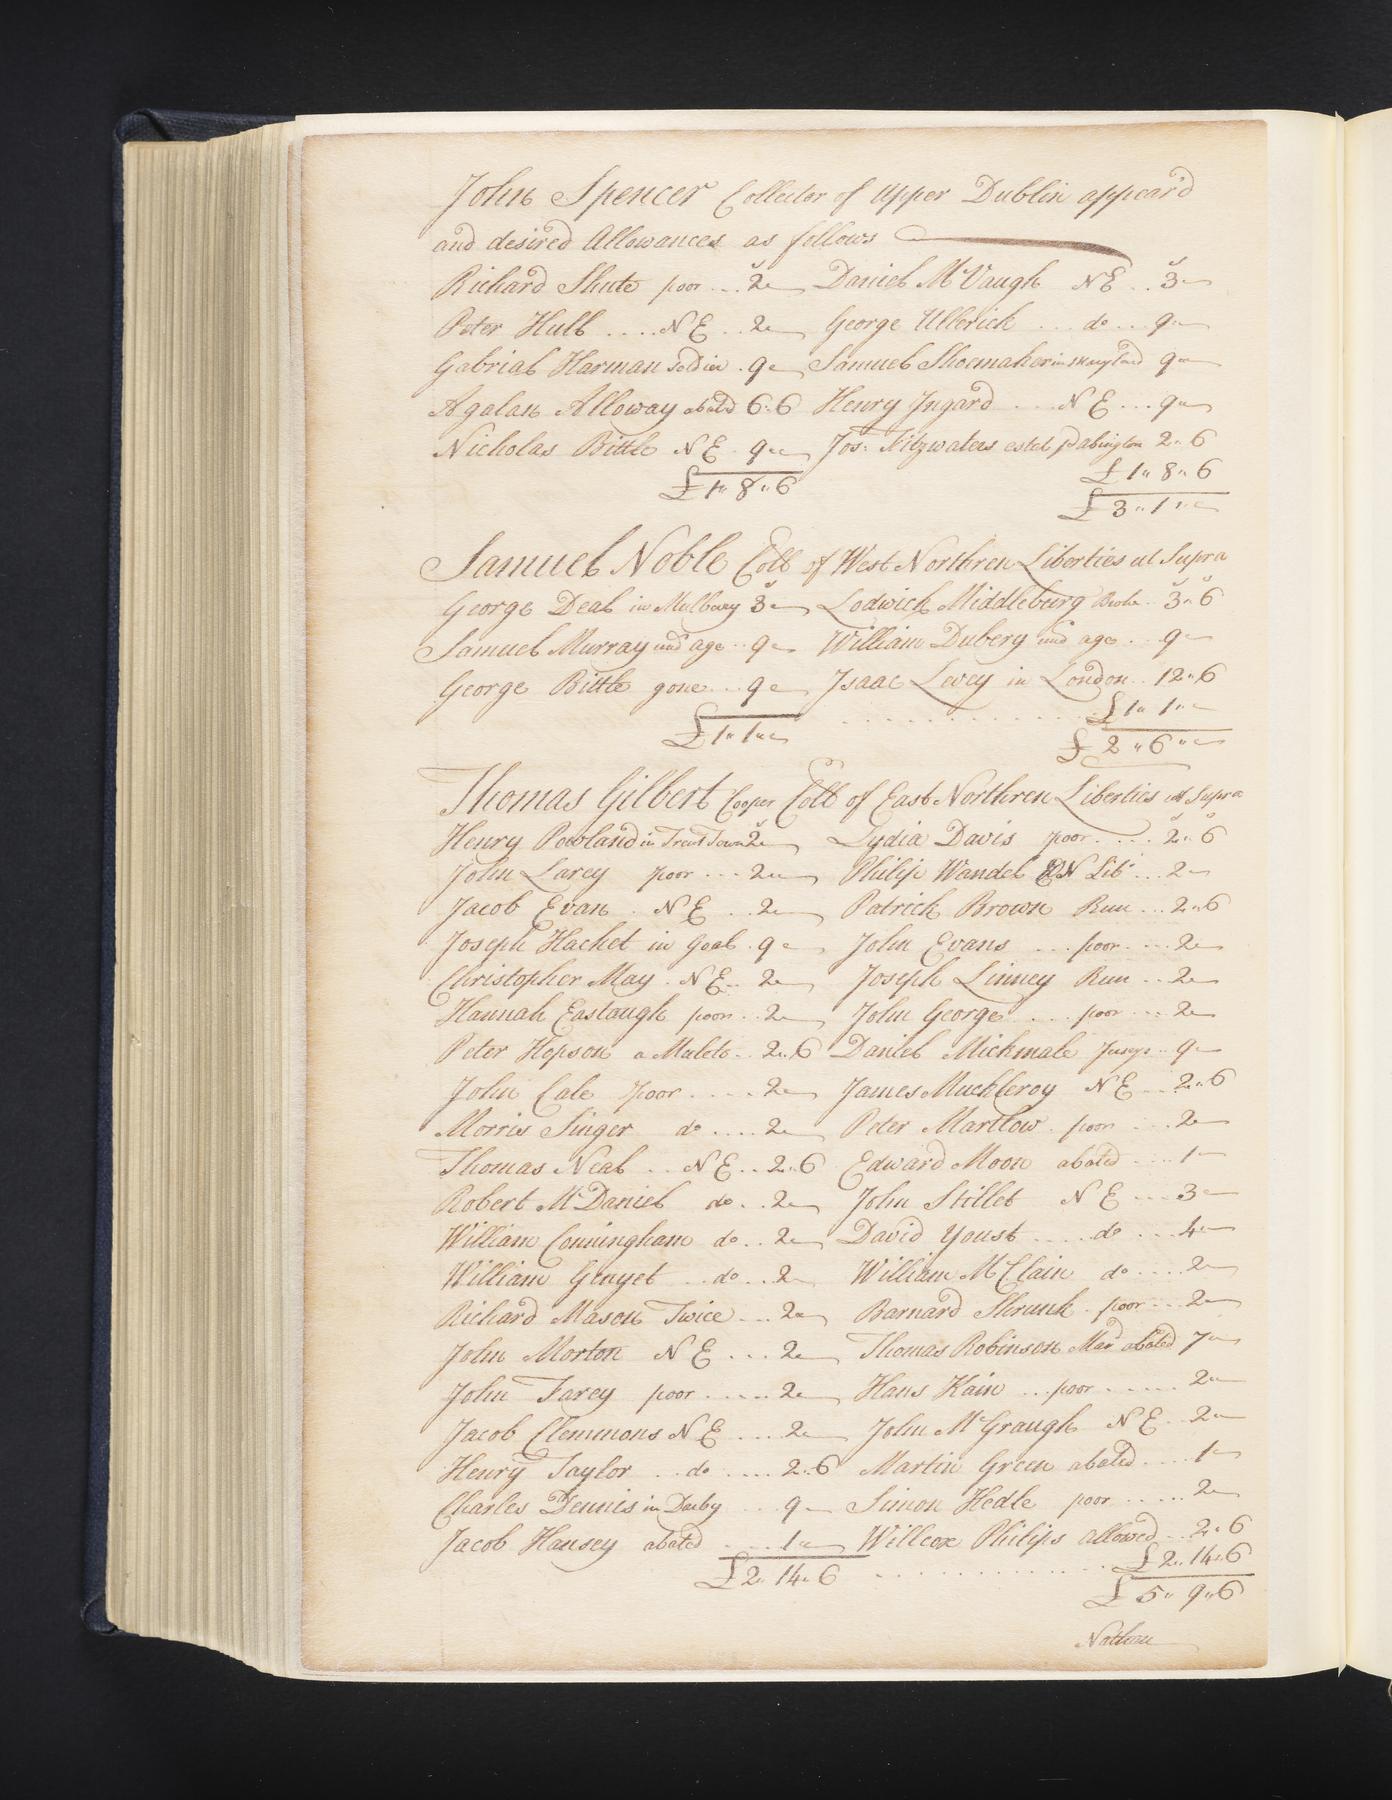 John Spencer Collector of Upper Dublin appear'd
and desired Allowances as follows
Richard Shute poor ... 2 „ Daniel McVaugh NE .. 3 „
Peter Hull .... NE .. 2 „ George Ullerick ... do ... 9 „
Gabriel Harman soldier . 9 „ Samuel Shoemaker in Maryland 9 „
Agalan Alloway abated 6 „ 6 Henry Ingard ... NE ... 9 „
Nicholas Bittle NE . 9 „ Jos: Fitzwaters estat pd abington 2 „ 6
£ 1 „ 8 „ 6
£ 1 „ 8 „ 6
£ 3 „ 1 „ „
Samuel Noble Coll of West Northren Liberties ut Supra
George Deal in Mulbery 3 „ Lodwick Middleburg Broke .. 3 „ 6
Samuel Murray und age .. 9 „ William Dubery und age .. 9 „
George Bittle gone ... 9 „ Isaac Levey in London .. 12 „ 6
£ 1 „ 1 „ „
£ 1 „ 1 „ „
£ 2 „ 6 „ „
Thomas Gilbert Cooper Coll of East Northren Liberties ut Supra
Henry Rowland in Trent Town 2 „ Lydia Davis poor .... 2 „ 6
John Larey poor ... 2 „ Philip Wandel N Lib ... 2 „
Jacob Evan . NE .. 2 „ Patrick Brown Run ... 2 „ 6
Joseph Hacket in Goal . 9 „ John Evans ... poor .... 2 „
Christopher May . NE .. 2 „ Joseph Linney Run .. 2 „
Hannah Eastaugh poor .. 2 „ John George .... poor ... 2 „
Peter Hepson a Maleto .. 2 „ 6 Daniel Mickmale .. 9 „
John Cale poor .... 2 „ James Muckleroy NE ... 2 „ 6
Morris Singer do .... 2 „ Peter Martlow . poor ... 2 „
Thomas Neal .. NE .. 2 „ 6 Edward Moon abated ... 1 „
Robert McDaniel do .. 2 „ John Stillet NE ... 3 „
William Conningham do .. 2 „ David Youst .... do ... 4 „
William Genget .. do ... 2 „ William McClain do .... 2 „
Richard Mason Twice ... 2 „ Barnard Shrunk . poor ... 2 „
John Morton NE ... 2 „ Thomas Robinson Mar abated 7 „
John Farey poor ..... 2 „ Hans Kain ... poor ...... 2 „
Jacob Clemmons NE ... 2 „ John McGraugh NE .. 2 „
Henry Taylor .. do ..... 2 „ 6 Martin Green abated .... 1 „
Charles Dennis in Darby ... 9 „ Simon Hedle poor ..... 2 „
Jacob Hansey abated .... 1 „ Willcox Philips allowed .. 2 „ 6
£ 2 „ 14 „ 6 ............ £ 2 „ 14 „ 6
£ 5 „ 9 „ 6